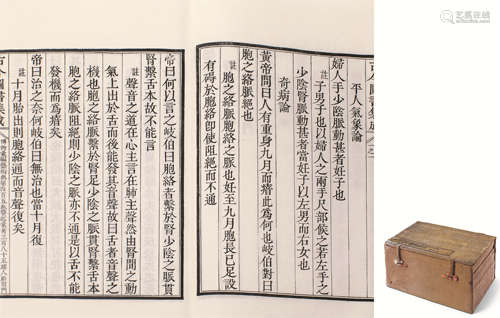 古今圖書集成
平人氣象論
婦人手少陰脈動甚者妊子也
註 子男子也以婦人之兩手尺部候之若左手之
少陰脈動甚者當妊子以左男而右女也
奇病論
黃帝問曰人有重身九月而瘖此為何也岐伯對曰
胞之絡脈絕也
註 胞之絡脈胞絡之脈也妊至九月胞長已足設
有碍於胞絡即使阻絕而不通
帝曰何以言之岐伯曰胞絡者繫於腎少陰之脈貫
腎繫舌本故不能言
註 聲音之道在心主言在肺主聲然由腎間之動
氣上出於舌而後能發其音聲故曰舌者音聲之
機也胞之絡脈繫於腎足少陰之脈貫腎繫舌本
胞之絡脈阻絕則少陰之脈亦不通是以舌不能
發機而為瘖矣
帝曰治之奈何岐伯曰無治也當十月復
註 十月胎出則胞絡通而音聲復矣
古今圖書集成
艺典中国